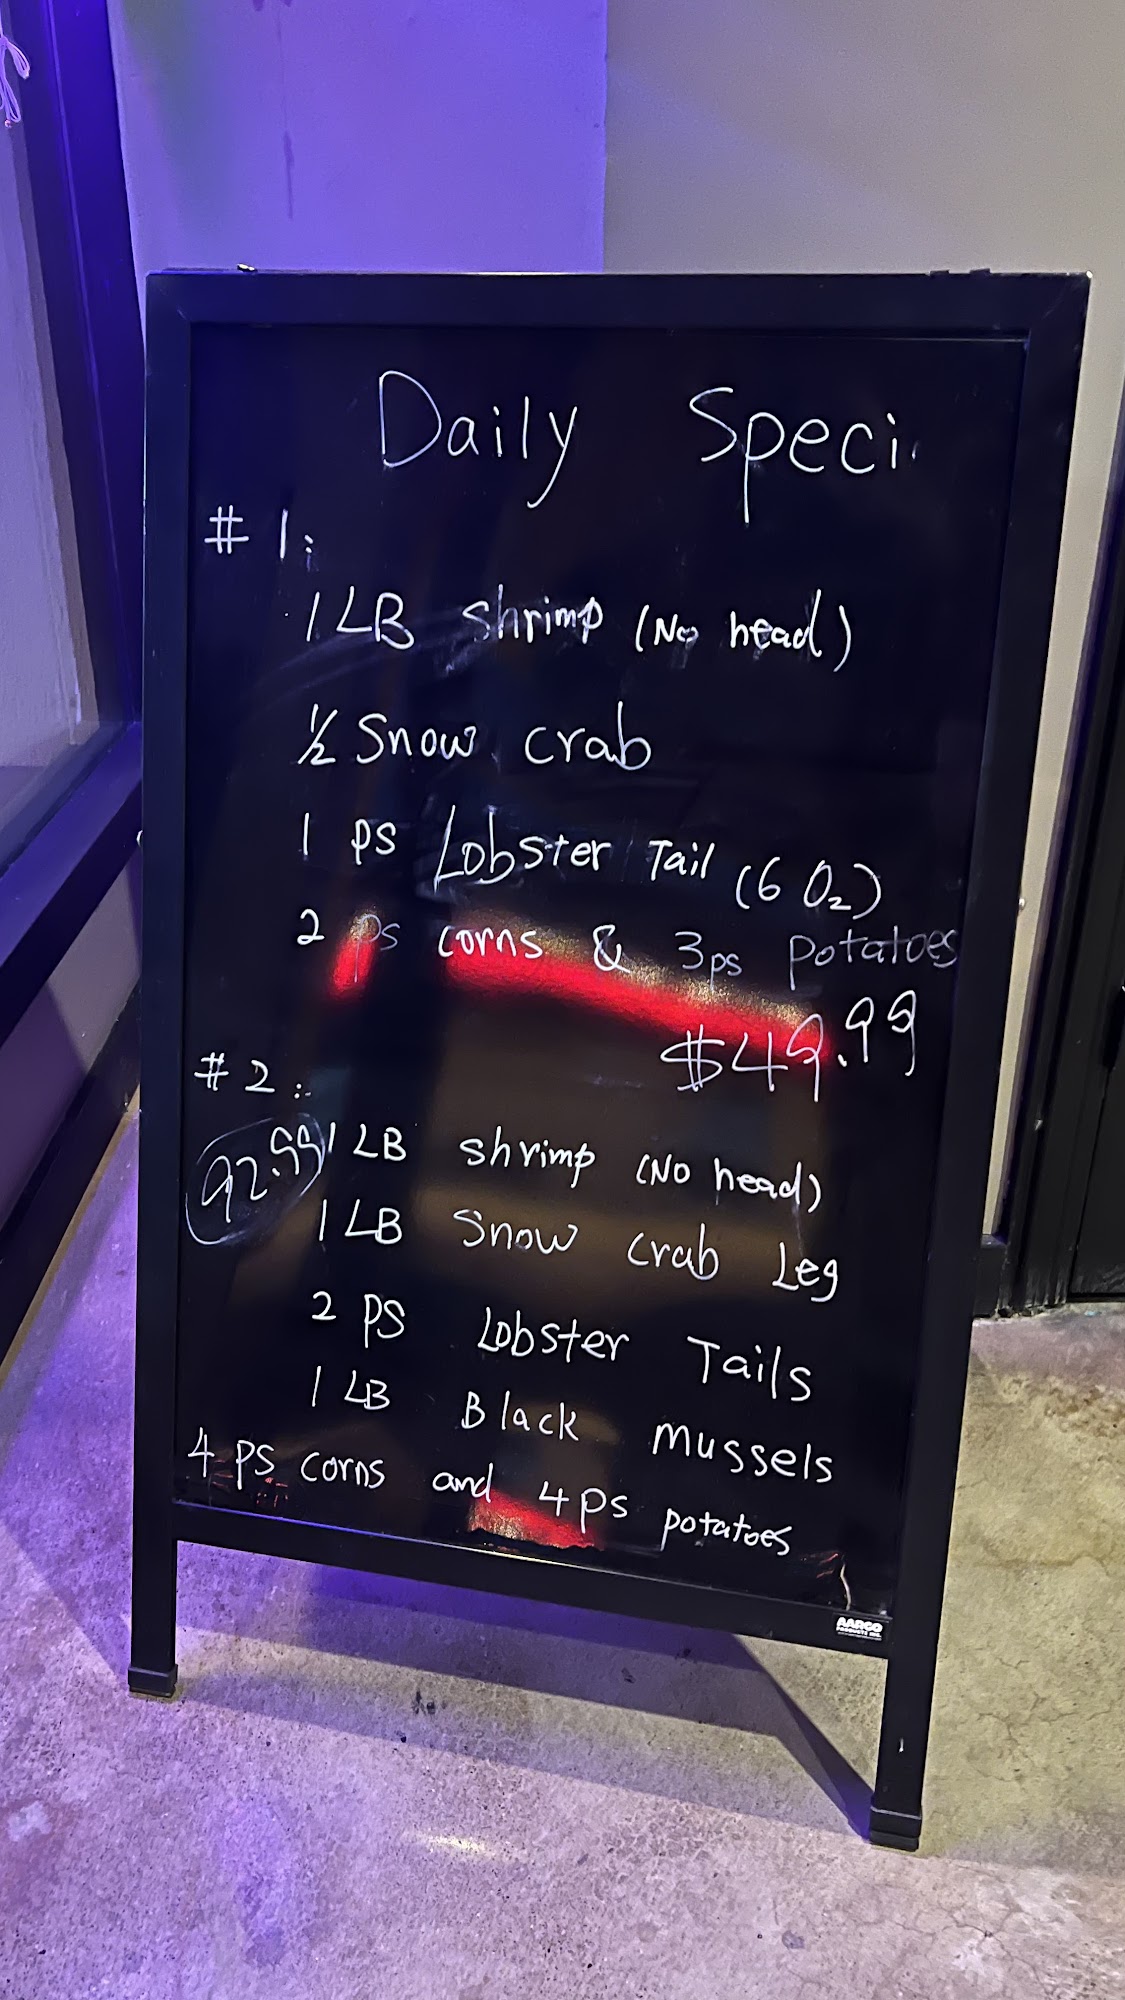 Daily Speci
# 1:
1 LB shrimp (No head)
½ Snow crab
1 ps Lobster Tail (6 Oz)
2 ps corns & 3ps potatoes
$49.99
# 2:
92.99
1 LB shrimp (No head)
1 LB Snow crab Leg
2 PS Lobster Tails
1 LB Black mussels
4 PS corns and 4PS potatoes
AARCO
PRODUCTS INC.